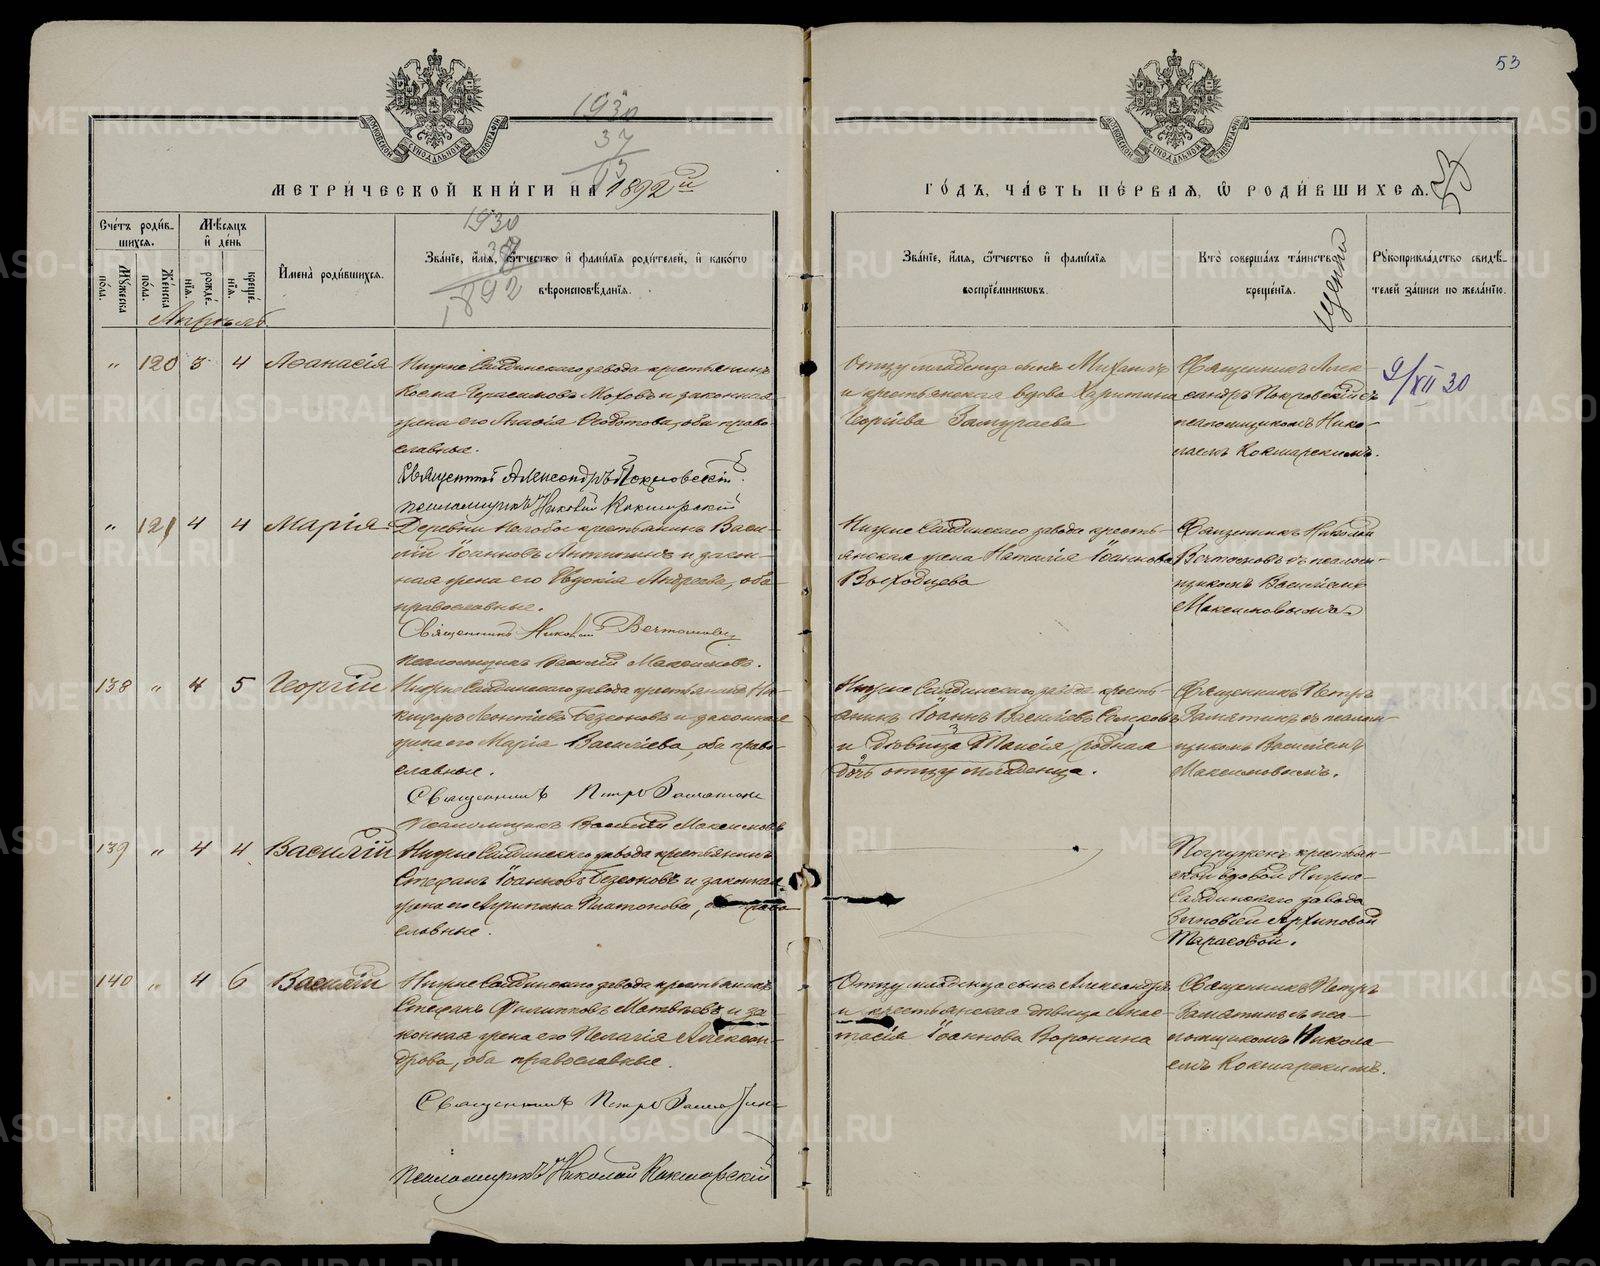 53
1930
37
МЕТРИ́ЧЕСКОЙ КНИ́ГИ НА 1892й
ГО́ДЪ, ЧА́СТЬ ПЕ́РВАЯ, Ѿ РОДИ́ВШИХСЯ.
53
Сче́тъ роди́в-
шихся.
Мѣ́сяцъ
и҆ де́нь
И҆мена̀ роди́вшихся.
Зва́нїе, и҆́мя, ѻ҆́тчество и҆ фамѝлїя роди́телей, и҆ како́гѡ
вѣроисповѣ́данїя.
Зва́нїе, и҆́мя, ѻ҆́тчество и҆ фамѝлїя
воспрїе́мникѡвъ.
Кто̀ соверша́лъ та́инство
креще́нїя.
Рꙋкоприкла́дство свидѣ́-
телей за́писи по жела́нїю.
Мꙋ́жеска
по́ла.
Же́нска
по́ла.
рожде́-
нїѧ.
креще́-
нїѧ.
1930
1892
Апрѣль
" 120 3 4 Аѳанасія
Нижне Салдинскаго завода крестьянинъ
Косма Герасимовъ Моховъ и законная
жена его Анѳія Ѳедотова, оба право-
славные.
Священникъ Александръ Покровскій
псаломщикъ Николай Кокшарскій
Отцу младенца сынъ Михаилъ
и крестьянская вдова Харитина
Георгіева Замураева
Священникъ Алек-
сандръ Покровскій съ
псаломщикомъ Нико-
лаемъ Кокшарскимъ.
9/XII 30
" 121 4 4 Марія
Деревни крестьянинъ Васи-
лій Іоанновъ и закон-
ная жена его Евдокія Андреева, оба
православные.
Священникъ Николай
псаломщикъ Василій Максимовъ.
Нижне Салдинскаго завода кресть-
янская жена Наталія Іоаннова
Выходцева
Священникъ Николай
съ псалом-
щикомъ Василіемъ
Максимовымъ
138 " 4 5 Георгій
Нижне Салдинскаго завода крестьянинъ Ни-
киѳоръ Леонтіевъ Безсоновъ и законная
жена его Марія Васильева, оба право-
славные.
Священникъ Петръ Замятинъ
псаломщикъ Василій Максимовъ
Нижне Салдинскаго завода кресть-
янинъ Іоаннъ Васильевъ
и дѣвица Таисія, родная
дочь отцу младенца.
Священникъ Петръ
Замятинъ съ псалом-
щикомъ Василіемъ
Максимовымъ.
139 " 4 4 Василій
Нижне Салдинскаго завода крестьянинъ
Стефанъ Іоанновъ Безсоновъ и законная
жена его Агрипина Платонова, оба право-
славные.
Погруженъ крестьян-
ской вдовой Нижне-
Салдинскаго завода
Зиновіей Архиповой
Тарасовой.
140 " 4 6 Василій
Нижне Салдинскаго завода крестьянинъ
Стефанъ Филипповъ Матвѣевъ и за-
конная жена его Пелагія Алексан-
дрова, оба православные.
Священникъ Петръ Замятинъ
псаломщикъ Николай Кокшарскій
Отцу младенца сынъ Александръ
и крестьянская дѣвица Анас-
тасія Іоаннова Воронина
Священникъ Петръ
Замятинъ съ пса-
ломщикомъ Никола-
емъ Кокшарскимъ.
METRIKI.GASO-URAL.RU